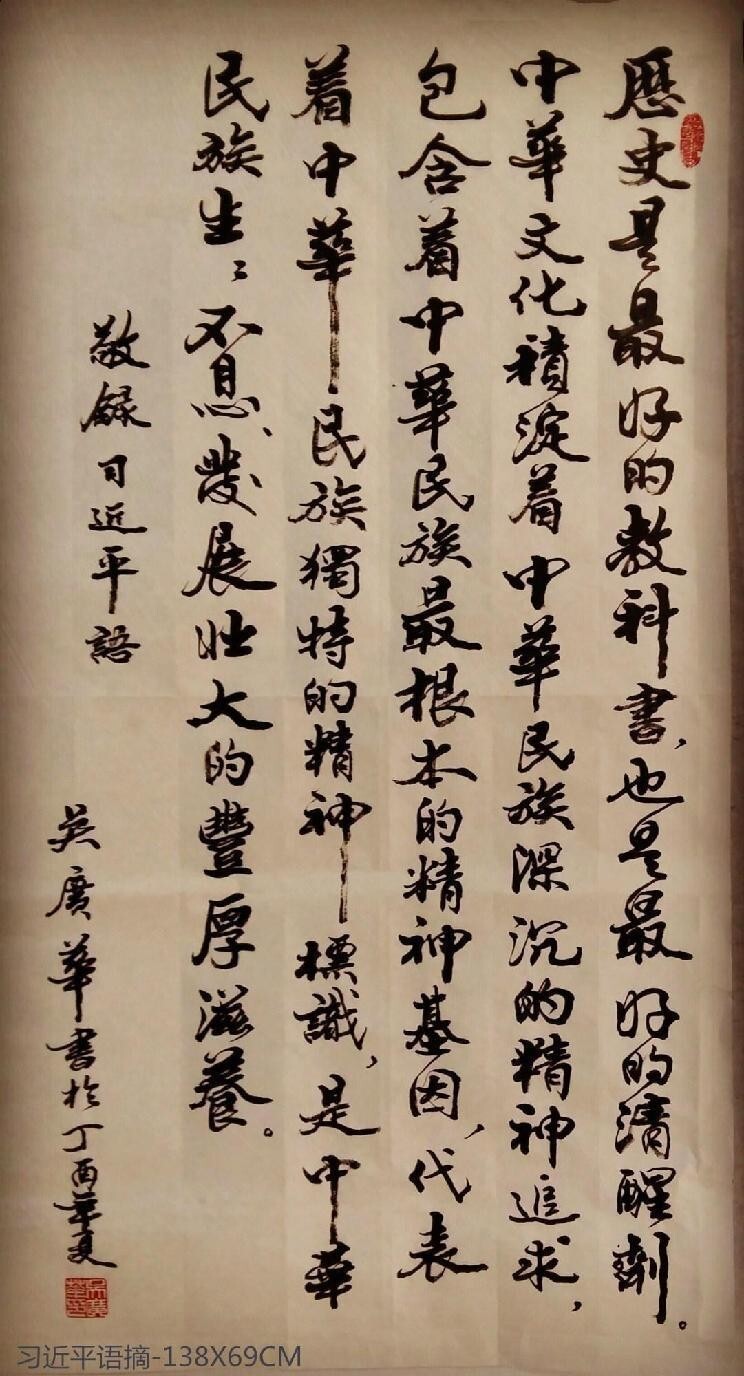 歷史是最好的教科書，也是最好的清醒劑。
中華文化積淀着中華民族深沉的精神追求，
包含着中華民族最根本的精神基因，代表
着中華民族獨特的精神標識，是中華
民族生〻不息、發展壯大的豐厚滋養。
敬録习近平語
吴廣華書於丁酉華夏
习近平语摘-138X69CM